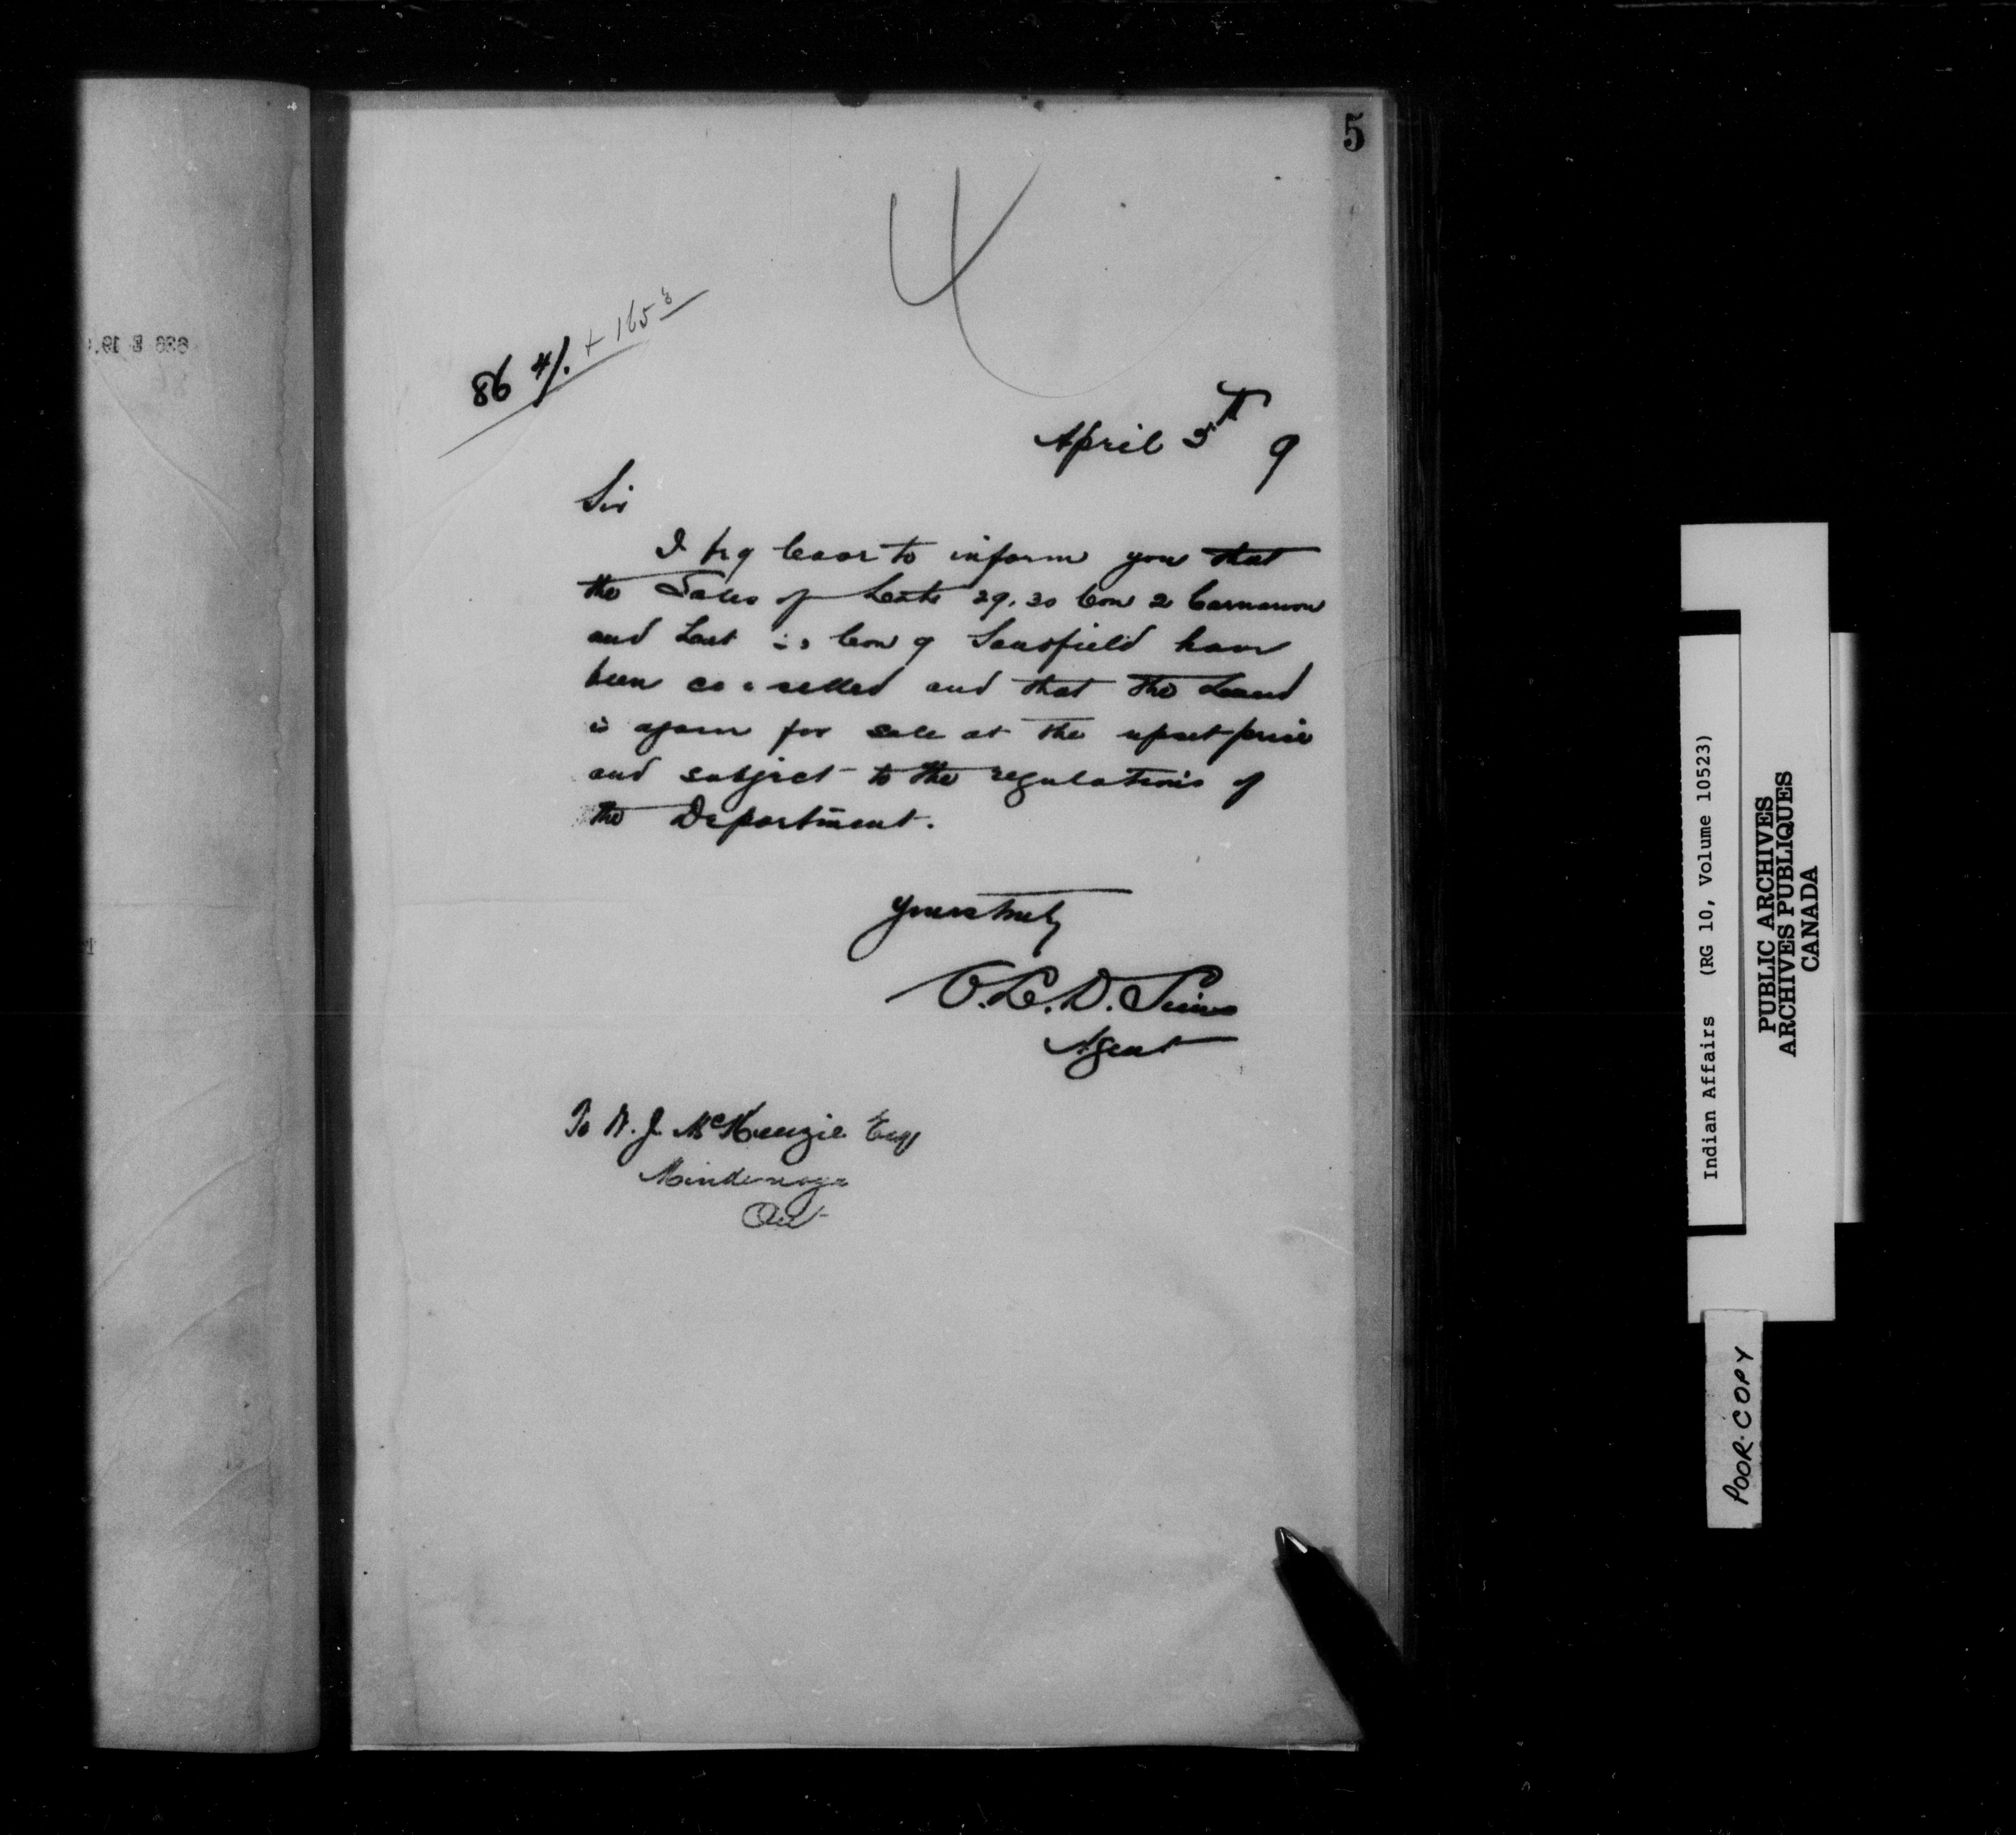 5
4
86 4/. + 165
April 5th 9
Sir
I beg leave to inform you that
the Sales of Lots 29, 30 Con 2 Carnarvon
and Lot Con 9 Sandfield have
been cancelled and that the Land
is again for sale at the upset price
and subject to the regulations of
the Department.
Yours truly
Agent
To McKenzie Esq
Mindemoya
Ont
Indian Affairs (RG 10, Volume 10523)
PUBLIC ARCHIVES
ARCHIVES PUBLIQUES
CANADA
POOR COPY